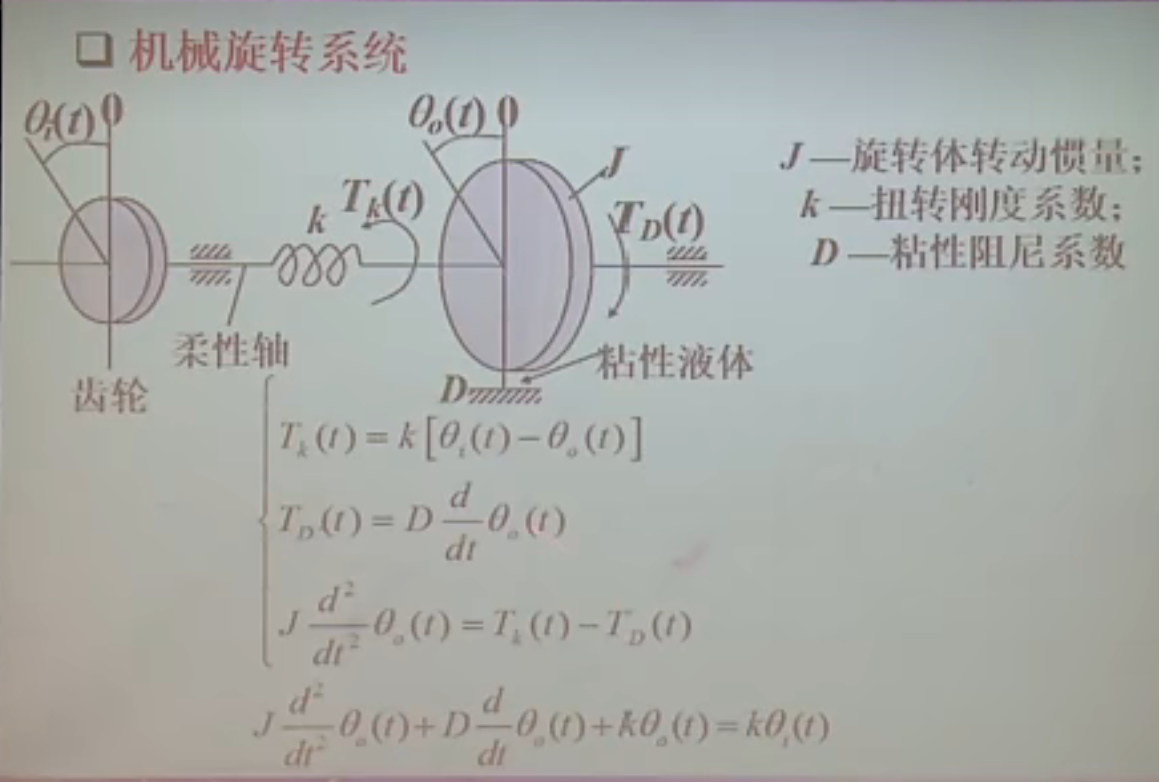 ❑ 机械旋转系统
θi(t) 0
θo(t) 0
J
k
Tk(t)
TD(t)
J —旋转体转动惯量;
k —扭转刚度系数;
D —粘性阻尼系数
柔性轴
齿轮
D
粘性液体
T_k(t) = k[θ_i(t) − θ_o(t)]
T_D(t) = D d/dt θ_o(t)
J d²/dt² θ_o(t) = T_k(t) − T_D(t)
J d²/dt² θ_o(t) + D d/dt θ_o(t) + kθ_o(t) = kθ_i(t)